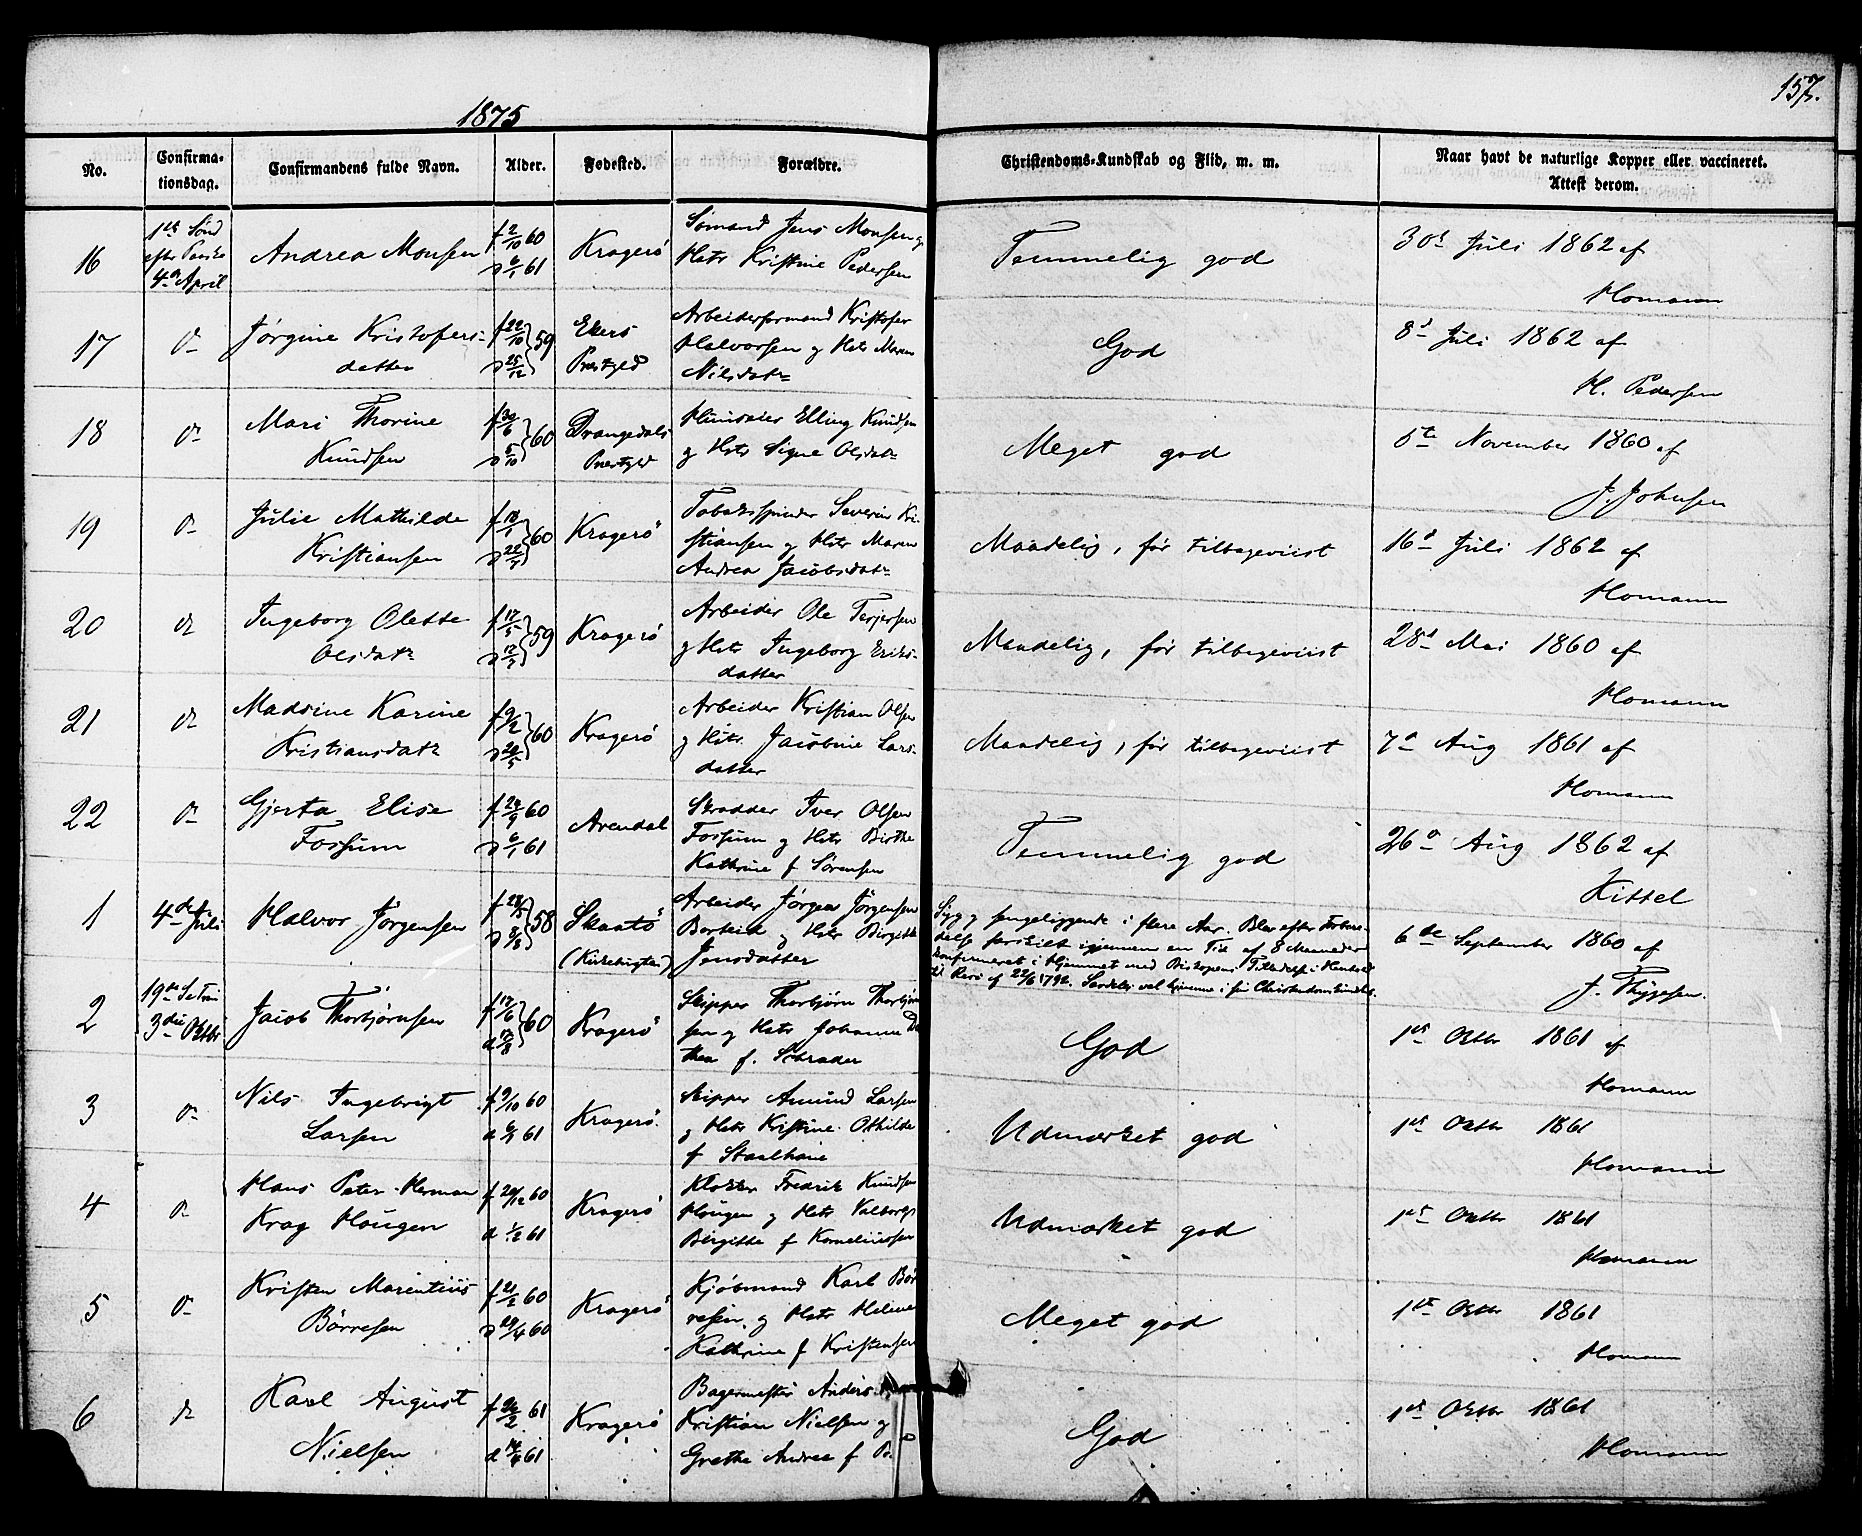 1875
157.
No.
Confirma-
tionsdag.
Confirmandens fulde Navn.
Alder.
Fødested.
Forældre.
Christendoms-Kundskab og Flid, m. m.
Naar havt de naturlige Kopper eller vaccineret.
Attest derom.
16
1ste Sønd
efter Paaske
4de April
Andrea Monsen
f 2/10 60
d 6/1 61
Kragerö
Sömand Jens Monsen og
Hstr Kristine Pedersen
Temmelig god
30te Juli 1862 af
Homann
17
do
Jørgine Kristofers-
datter
f 22/10
d 25/12
59
Ekers
Præstgld
Arbeidsformand Kristofer
Halvorsen og Hstr Maren
Nilsdatr
God
8d Juli 1862 af
H. Pedersen
18
do
Mari Thorine
Knudsen
f 30/6
d 5/10
60
Drangedals
Præstgld
Huuseier Elling Knudsen
og Hstr Signe Olsdatr
Meget god
5te November 1860 af
J. Johnsen
19
do
Julie Mathilde
Kristiansen
60
Kragerö
Tobaksspinder Severin Kri-
stiansen og Hstr Maren
Andrea Jacobsdatr
Maadelig, før tilbageviist
16d Juli 1862 af
Homann
20
do
Ingeborg Olette
Olsdatr
f 17/5
59
Kragerö
Arbeider Ole Terjersen
og Hstr Ingeborg Eriks-
datter
Maadelig, før tilbageviist
28d Mai 1860 af
Homann
21
do
Madsine Karine
Kristiansdatr
f 9/2
60
Kragerö
Arbeider Kristian Olsen
og Hstr Jacobine Lars-
datter
Maadelig, før tilbageviist
7d Aug 1861 af
Homann
22
do
Gjerta Elise
Fossum
60
d 6/1 61
Arendal
Skrædder Iver Olsen
Fossum og Hstr Birthe
Kathrine f Sörensen
Temmelig god
26d Aug 1862 af
Kittel
1
4de Juli
Halvor Jörgensen
f 28/5
d 8/8
58
Skaatö
(Kirkebugten)
Arbeider Jörgen Jörgensen
og Hstr Birgitte
Jensdatter
Syg og sengeliggende i flere Aar. Blev efter Forbere-
delse særskilt igjennem en Tid af 8 Maaneder
konfirmeret i Hjemmet med Biskopens Tilladelse i Henhold
til Rescr. af 22/6 1792. Særdeles vel hjemme i sin Christendomskundskab.
6te September 1860 af
J. Thygesen.
2
19de S e Trin
3die Oktbr
Jacob Thorbjörnsen
f 17/6
d 12/8
60
Kragerö
Skipper Thorbjörn Thorbjörn
sen og Hstr Johanne Do
thea f. Schrader
God
1ste Oktbr 1861 af
Homann
3
do
Nils Ingebrigt
Larsen
f 9/10 60
61
Kragerö.
Skipper Amund Larsen
og Hstr Kristine Othilde
f Staalhane
Udmærket god
1ste Oktbr 1861
Homann
4
do
Hans Peter Herman
Krag Hougen
f 20/12 60
d 1/2 61
Kragerö
Klokker Fredrik Knudsen
Hougen og Hstr Valborg
Birgitte f Korneliussen
Udmærket god
1ste Oktbr 1861
Homann
5
do
Kristen Marentius
Börresen
f 21/2 60
d 29/4 60
Kragerö
Kjöbmand Karl Bör
resen og Hstr Helene
Kathrine f Kristensen
Meget god
1ste Oktbr 1861
Homann
6
do
Karl August
Nielsen
61
61
Kragerö
Bagermester Anders
Kristian Nielsen og
Grethe Andrea f
God
1ste Oktbr 1861
Homann